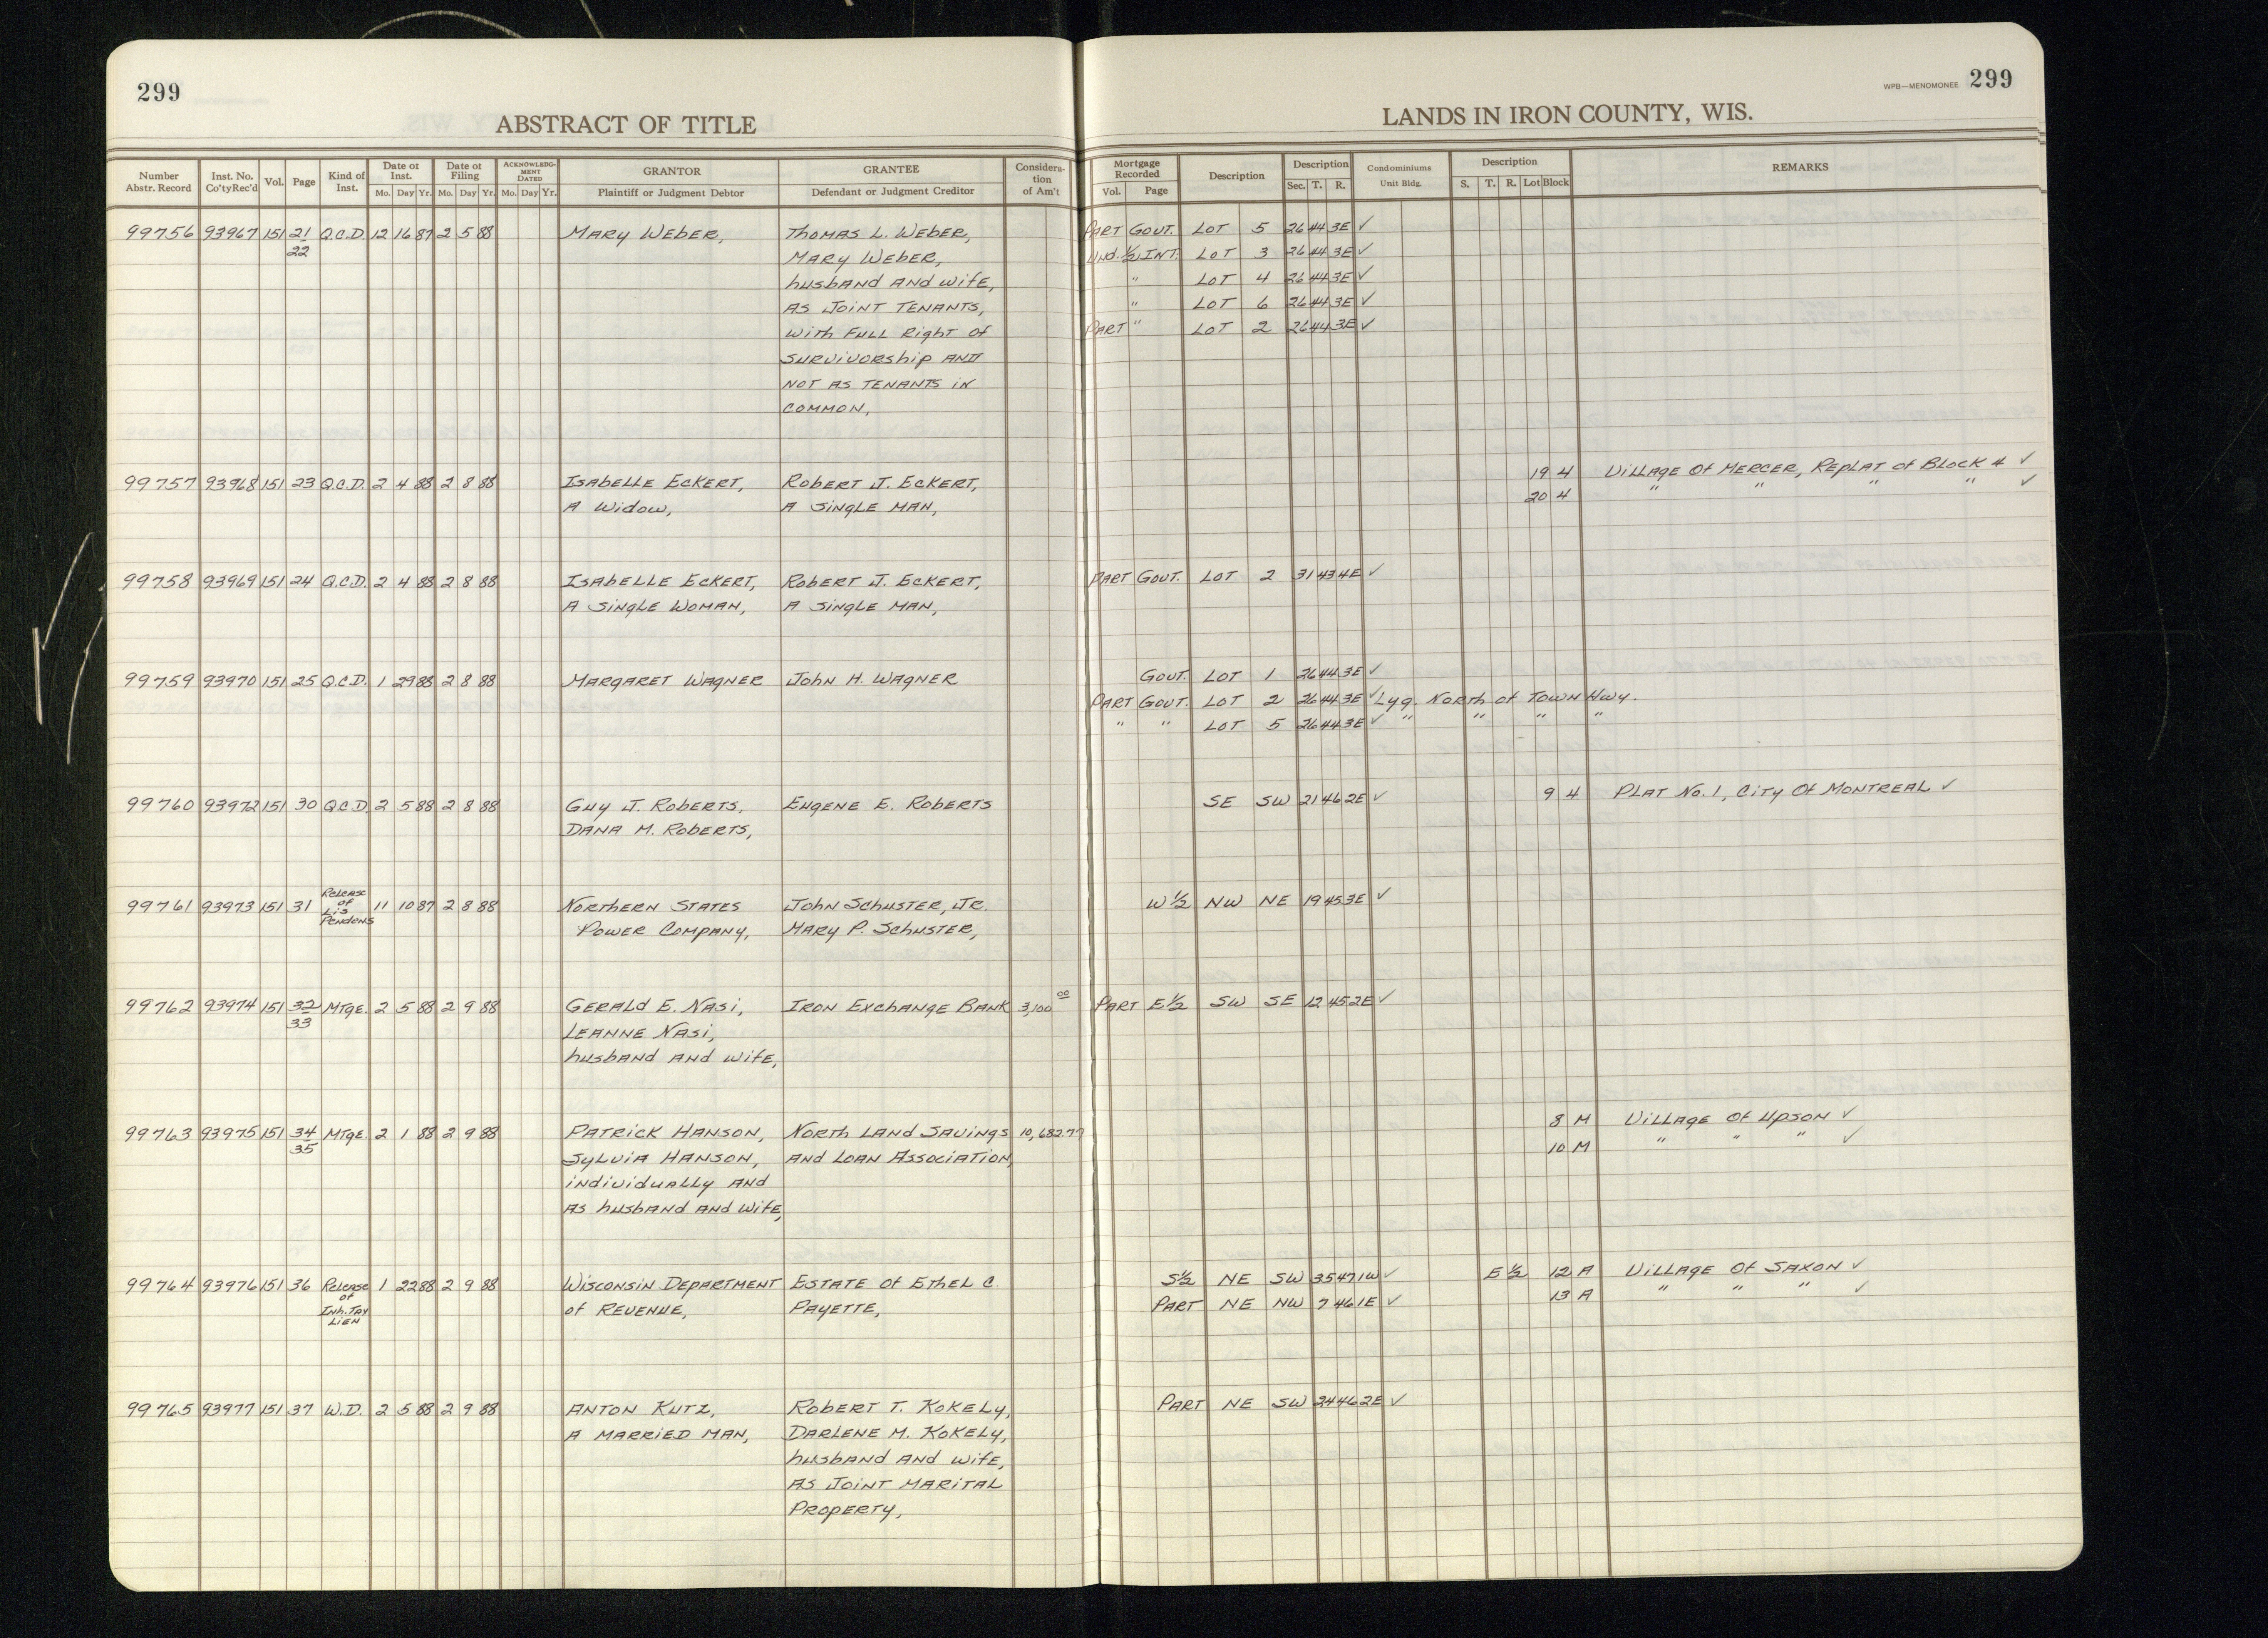 299
ABSTRACT OF TITLE
Number Abstr. Record | Inst. No. Co'ty Rec'd | Vol. | Page | Kind of Inst. | Date of Inst. Mo. Day Yr. | Date of Filing Mo. Day Yr. | ACKNOWLEDGMENT DATED Mo. Day Yr. | GRANTOR Plaintiff or Judgment Debtor | GRANTEE Defendant or Judgment Creditor | Consideration of Am't
99756 93967 151 21 Q.C.D. 12 16 87 2 5 88 MARY WEBER, THOMAS L. WEBER,
22 MARY WEBER,
husband and wife,
AS JOINT TENANTS,
with FULL Right of
SURVIVORship AND
NOT AS TENANTS in
COMMON,
99757 93968 151 23 Q.C.D. 2 4 88 2 8 88 ISABELLE ECKERT, ROBERT J. ECKERT,
A Widow, A SINGLE MAN,
99758 93969 151 24 Q.C.D. 2 4 88 2 8 88 ISABELLE ECKERT, ROBERT J. ECKERT,
A SINGLE WOMAN, A SINGLE MAN,
99759 93970 151 25 Q.C.D. 1 29 88 2 8 88 MARGARET WAGNER JOHN H. WAGNER
99760 93972 151 30 Q.C.D. 2 5 88 2 8 88 GUY J. ROBERTS, EUGENE E. ROBERTS
DANA M. ROBERTS,
99761 93973 151 31 Release of Lis Pendens 11 10 87 2 8 88 NORTHERN STATES JOHN SCHUSTER, JR.
POWER COMPANY, MARY P. SCHUSTER,
99762 93974 151 32 MTGE. 2 5 88 2 9 88 GERALD E. NASI, IRON EXCHANGE BANK 3,100 00
33 LEANNE NASI,
husband and wife,
99763 93975 151 34 MTGE. 2 1 88 2 9 88 PATRICK HANSON, NORTH LAND SAVINGS 10,682.77
35 SYLVIA HANSON, AND LOAN ASSOCIATION,
individually AND
AS husband AND wife,
99764 93976 151 36 Release of Inh. Tax Lien 1 22 88 2 9 88 WISCONSIN DEPARTMENT ESTATE of Ethel C.
of REVENUE, PAYETTE,
99765 93977 151 37 W.D. 2 5 88 2 9 88 ANTON KUTZ, ROBERT T. KOKELY,
A MARRIED MAN, DARLENE M. KOKELY,
husband AND wife,
AS JOINT MARITAL
PROPERTY,
WPB—MENOMONEE 299
LANDS IN IRON COUNTY, WIS.
Mortgage Recorded Vol. Page | Description | Description Sec. T. R. | Condominiums Unit Bldg. | Description S. T. R. Lot Block | REMARKS
PART GOVT. LOT 5 26 44 3E ✓
Und. ½ INT. LOT 3 26 44 3E ✓
" LOT 4 26 44 3E ✓
" LOT 6 26 44 3E ✓
PART " LOT 2 26 44 3E ✓
19 4 VILLAGE Of MERCER, REPLAT of BLOCK 4 ✓
20 4 " " " " ✓
PART GOVT. LOT 2 31 43 4E ✓
GOVT. LOT 1 26 44 3E ✓
PART GOVT. LOT 2 26 44 3E ✓ Lyg. North of TOWN Hwy.
" " LOT 5 26 44 3E ✓ " " " "
SE SW 21 46 2E ✓ 9 4 PLAT No. 1, City Of MONTREAL ✓
W ½ NW NE 19 45 3E ✓
PART E ½ SW SE 12 45 2E ✓
8 M VILLAGE Of UPSON ✓
10 M " " " ✓
S½ NE SW 35 47 1W ✓ E ½ 12 A VILLAGE Of SAXON ✓
PART NE NW 7 46 1E ✓ 13 A " " " ✓
PART NE SW 24 46 2E ✓